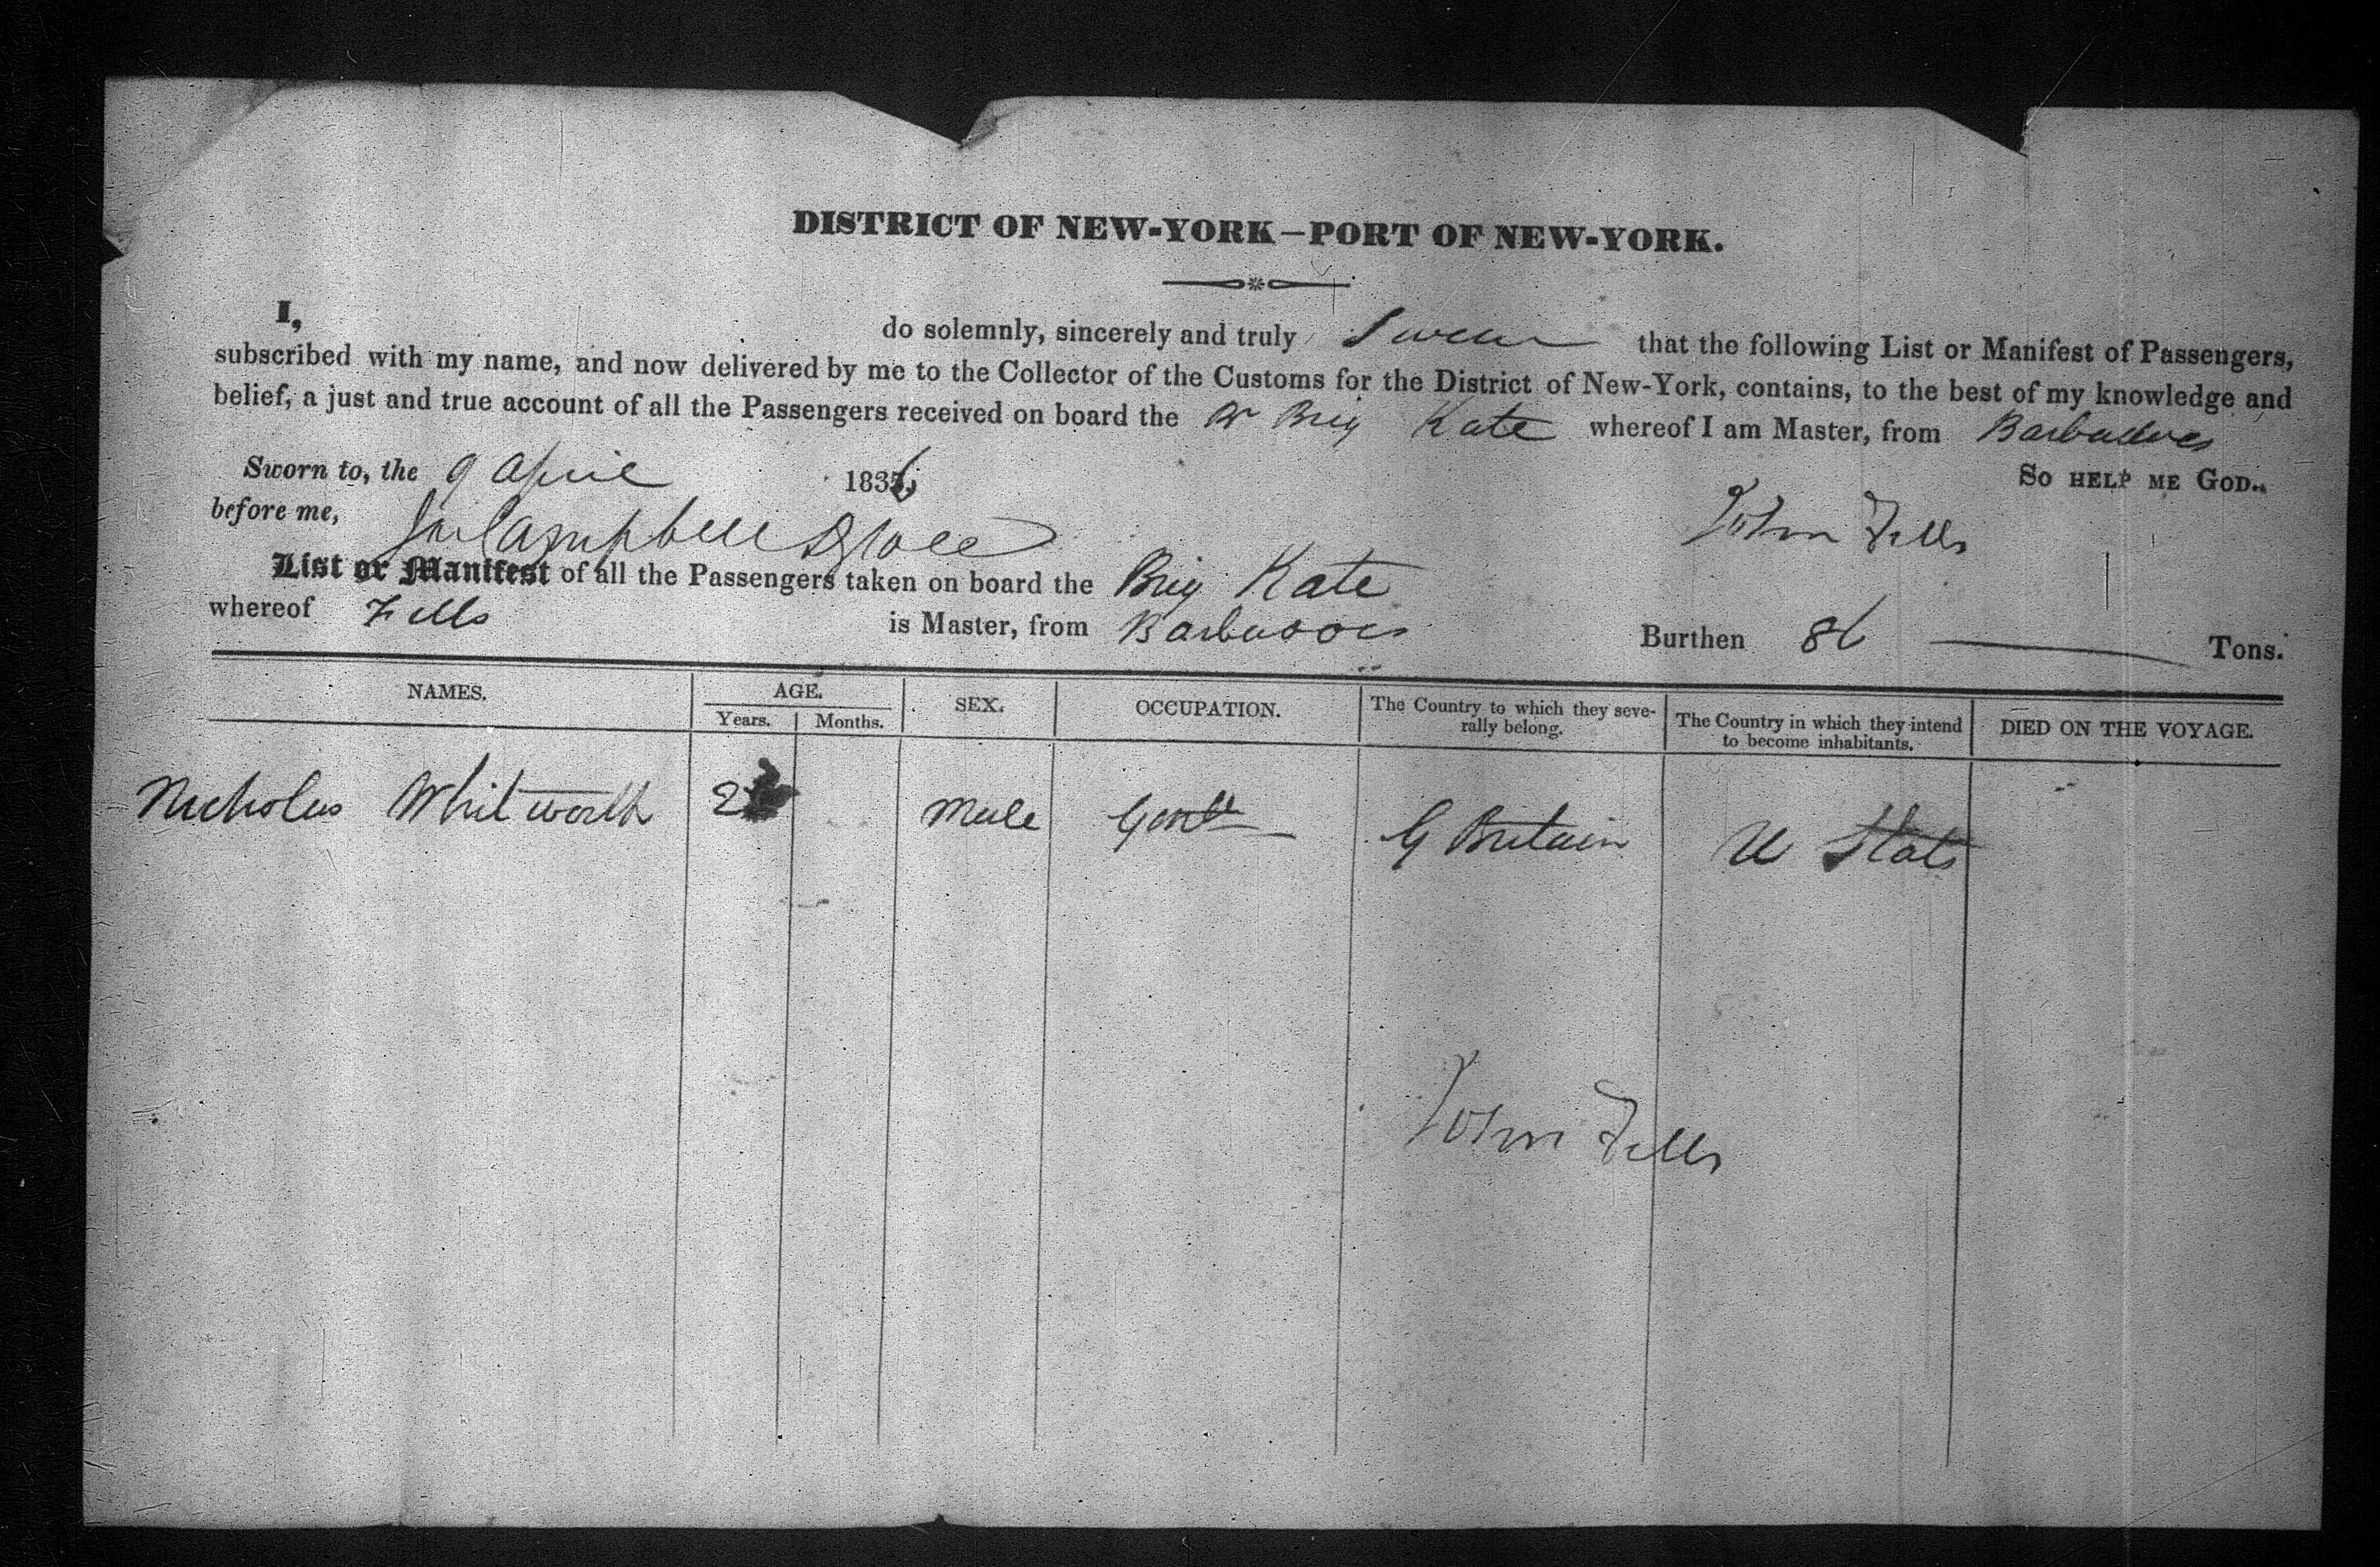 DISTRICT OF NEW-YORK—PORT OF NEW-YORK.
I, do solemnly, sincerely and truly Swear that the following List or Manifest of Passengers,
subscribed with my name, and now delivered by me to the Collector of the Customs for the District of New-York, contains, to the best of my knowledge and
belief, a just and true account of all the Passengers received on board the Br Brig Kate whereof I am Master, from Barbadoes
Sworn to, the 9 April 1836 So help me God.
before me, John Fells
List or Manifest of all the Passengers taken on board the Brig Kate
whereof Fells is Master, from Barbadoes Burthen 86 Tons.
NAMES. AGE. Years. Months. SEX. OCCUPATION. The Country to which they severally belong. The Country in which they intend to become inhabitants. DIED ON THE VOYAGE.
Nicholas Whitworth Male Gentn G Britain U Stats
John Fells